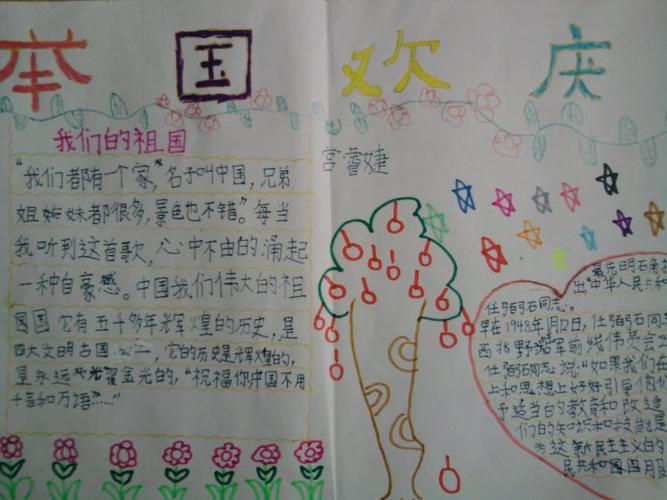 举国欢庆
我们的祖国
宫睿婕
“我们都有一个家，名子叫中国，兄弟
姐妹都很多，景色也不错”。每当
我听到这首歌，心中不由的涌起
一种自豪感。中国我们伟大的祖
国它有五千多年光辉煌的历史，是
四大文明古国之一，它的历史是光辉煌的，
是永远光耀金光的，“祝福你中国不用
千言和万语”……”
最先明石角
出中华人民共和
任弼石同志。
早在1948年1月12日，任弼石同
西北野战军前线伟员会
任弼石同志说：“如果我们在
上和思想上好好引导個们
予适当白勺教育和改造
们的知识和技能是
为这新民主主义白勺
民共和国国